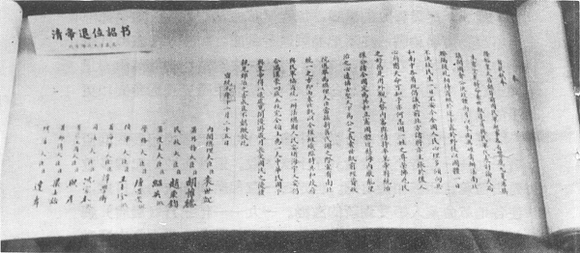 清帝退位詔书
奉
旨朕欽奉
隆裕皇太后懿旨前因民軍起事各省響應九夏沸騰生
靈塗炭特命袁世凱遣員與民軍代表討論大局
議開國會公決政體兩月以來尚無確當辦法南北
暌隔彼此相持商輟於途士露於野徒以國體一日
不決故民生一日不安今全國人民心理多傾向共
和南中各省既倡議於前北方諸將亦主張於後人
心所嚮天命可知予亦何忍因一姓之尊榮拂兆民
之好惡是用外觀大勢內審輿情特率皇帝將統治
權公諸全國定為共和立憲國體近慰海內厭亂望
治之心遠協古聖天下為公之義袁世凱前經資政
院選舉為總理大臣當茲新舊代謝之際宜有南北
統一之方即由袁世凱以全權組織臨時共和政府
與民軍協商統一辦法總期人民安堵海宇乂安仍
合滿漢蒙回藏五族完全領土為一大中華民國予
與皇帝得以退處寬閒優游歲月長受國民之優禮
親見郅治之告成豈不懿歟欽此
宣統三年十二月二十五日
內閣總理大臣袁世凱
署外務大臣胡惟德
民政大臣趙秉鈞
署度支大臣紹英
學務大臣唐景崇
陸軍大臣王士珍
署海軍大臣譚學衡
司法大臣沈家本
署農工商大臣熙彥
署郵傳大臣梁士詒
理藩大臣達壽